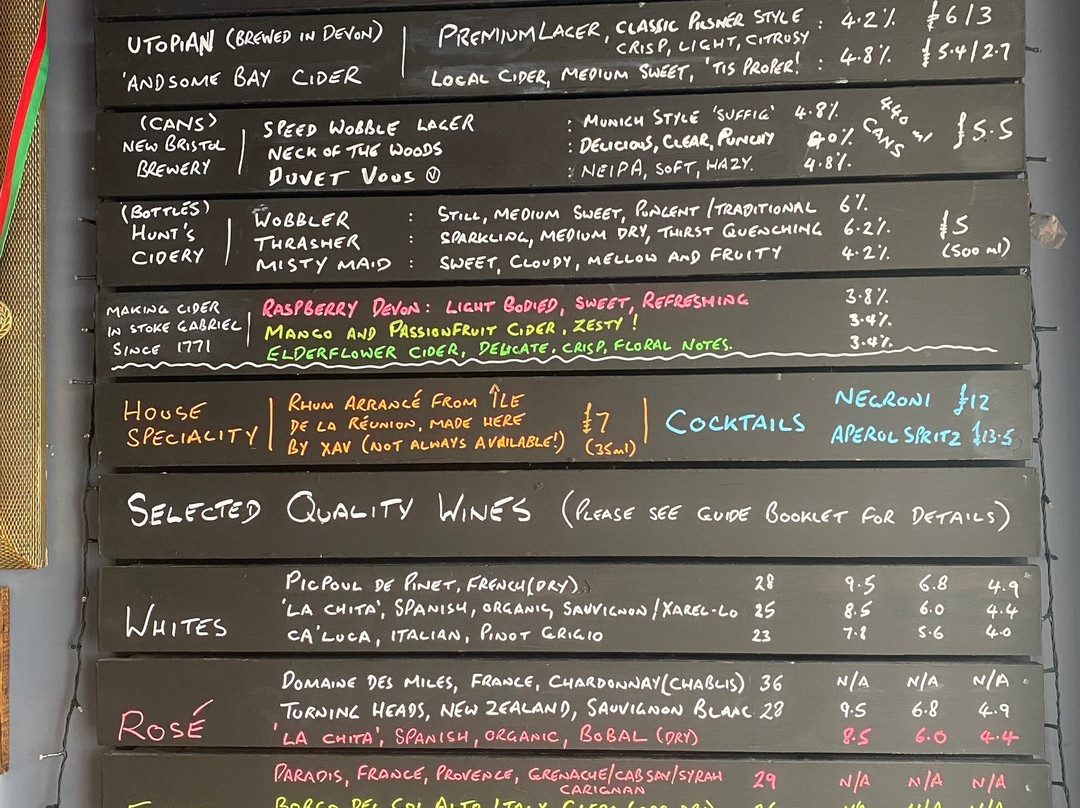 UTOPIAN (BREWED IN DEVON) | PREMIUM LAGER, CLASSIC PILSNER STYLE : 4.2% £6/3
CRISP, LIGHT, CITRUSY
'ANDSOME BAY CIDER | LOCAL CIDER, MEDIUM SWEET, 'TIS PROPER! : 4.8% £5.4/2.7
(CANS)
NEW BRISTOL
BREWERY
SPEED WOBBLE LAGER : MUNICH STYLE 'SUFFIG' 4.8%
NECK OF THE WOODS : DELICIOUS, CLEAR, PUNCHY
DUVET VOUS Ⓥ : NEIPA, SOFT, HAZY. 4.8%.
440 ml
CANS
£5.5
(BOTTLES)
HUNT'S
CIDERY
WOBBLER : STILL, MEDIUM SWEET, PUNGENT/TRADITIONAL 6%
THRASHER : SPARKLING, MEDIUM DRY, THIRST QUENCHING 6.2%
MISTY MAID : SWEET, CLOUDY, MELLOW AND FRUITY 4.2%
£5
(500 ml)
MAKING CIDER
IN STOKE GABRIEL
SINCE 1771
RASPBERRY DEVON: LIGHT BODIED, SWEET, REFRESHING 3.8%
MANGO AND PASSIONFRUIT CIDER, ZESTY! 3.4%
ELDERFLOWER CIDER, DELICATE, CRISP, FLORAL NOTES. 3.4%
HOUSE
SPECIALITY
RHUM ARRANCÉ FROM ÎLE
DE LA RÉUNION, MADE HERE
BY XAV (NOT ALWAYS AVAILABLE!)
£7
(35ml)
COCKTAILS
NEGRONI £12
APEROL SPRITZ £13.5
SELECTED QUALITY WINES (PLEASE SEE GUIDE BOOKLET FOR DETAILS)
WHITES
PICPOUL DE PINET, FRENCH (DRY) 28 9.5 6.8 4.9
'LA CHITA', SPANISH, ORGANIC, SAUVIGNON/XAREL-LO 25 8.5 6.0 4.4
CA'LUCA, ITALIAN, PINOT GRIGIO 23 7.8 5.6 4.0
DOMAINE DES MILES, FRANCE, CHARDONNAY (CHABLIS) 36 N/A N/A N/A
TURNING HEADS, NEW ZEALAND, SAUVIGNON BLANC 28 9.5 6.8 4.9
ROSÉ
'LA CHITA', SPANISH, ORGANIC, BOBAL (DRY) 8.5 6.0 4.4
PARADIS, FRANCE, PROVENCE, GRENACHE/CAB SAV/SYRAH 29 N/A N/A N/A
CARIGNAN